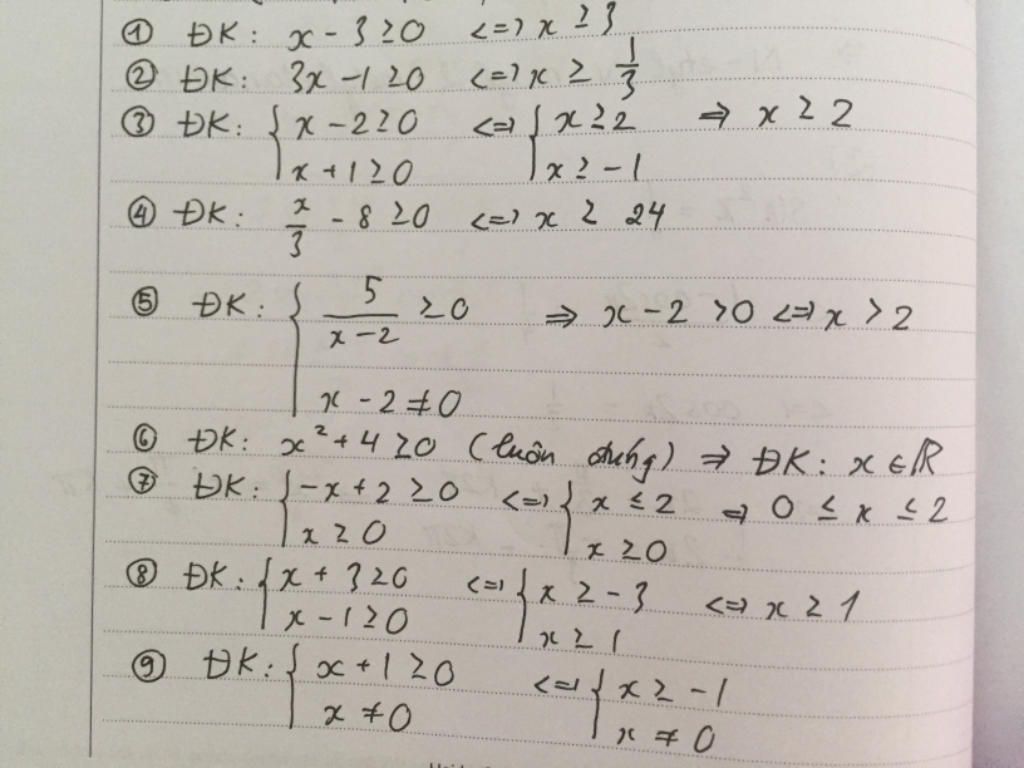 ① ĐK: x - 3 ≥ 0 <=> x ≥ 3
② ĐK: 3x - 1 ≥ 0 <=> x ≥ 1/3
③ ĐK: { x - 2 ≥ 0 <=> { x ≥ 2 => x ≥ 2
x + 1 ≥ 0 x ≥ -1
④ ĐK: x/3 - 8 ≥ 0 <=> x ≥ 24
⑤ ĐK: { 5/(x-2) ≥ 0 => x - 2 > 0 <=> x > 2
x - 2 ≠ 0
⑥ ĐK: x² + 4 ≥ 0 (luôn đúng) => ĐK: x ∈ ℝ
⑦ ĐK: { -x + 2 ≥ 0 <=> { x ≤ 2 => 0 ≤ x ≤ 2
x ≥ 0 x ≥ 0
⑧ ĐK: { x + 3 ≥ 0 <=> { x ≥ -3 <=> x ≥ 1
x - 1 ≥ 0 x ≥ 1
⑨ ĐK: { x + 1 ≥ 0 <=> { x ≥ -1
x ≠ 0 x ≠ 0